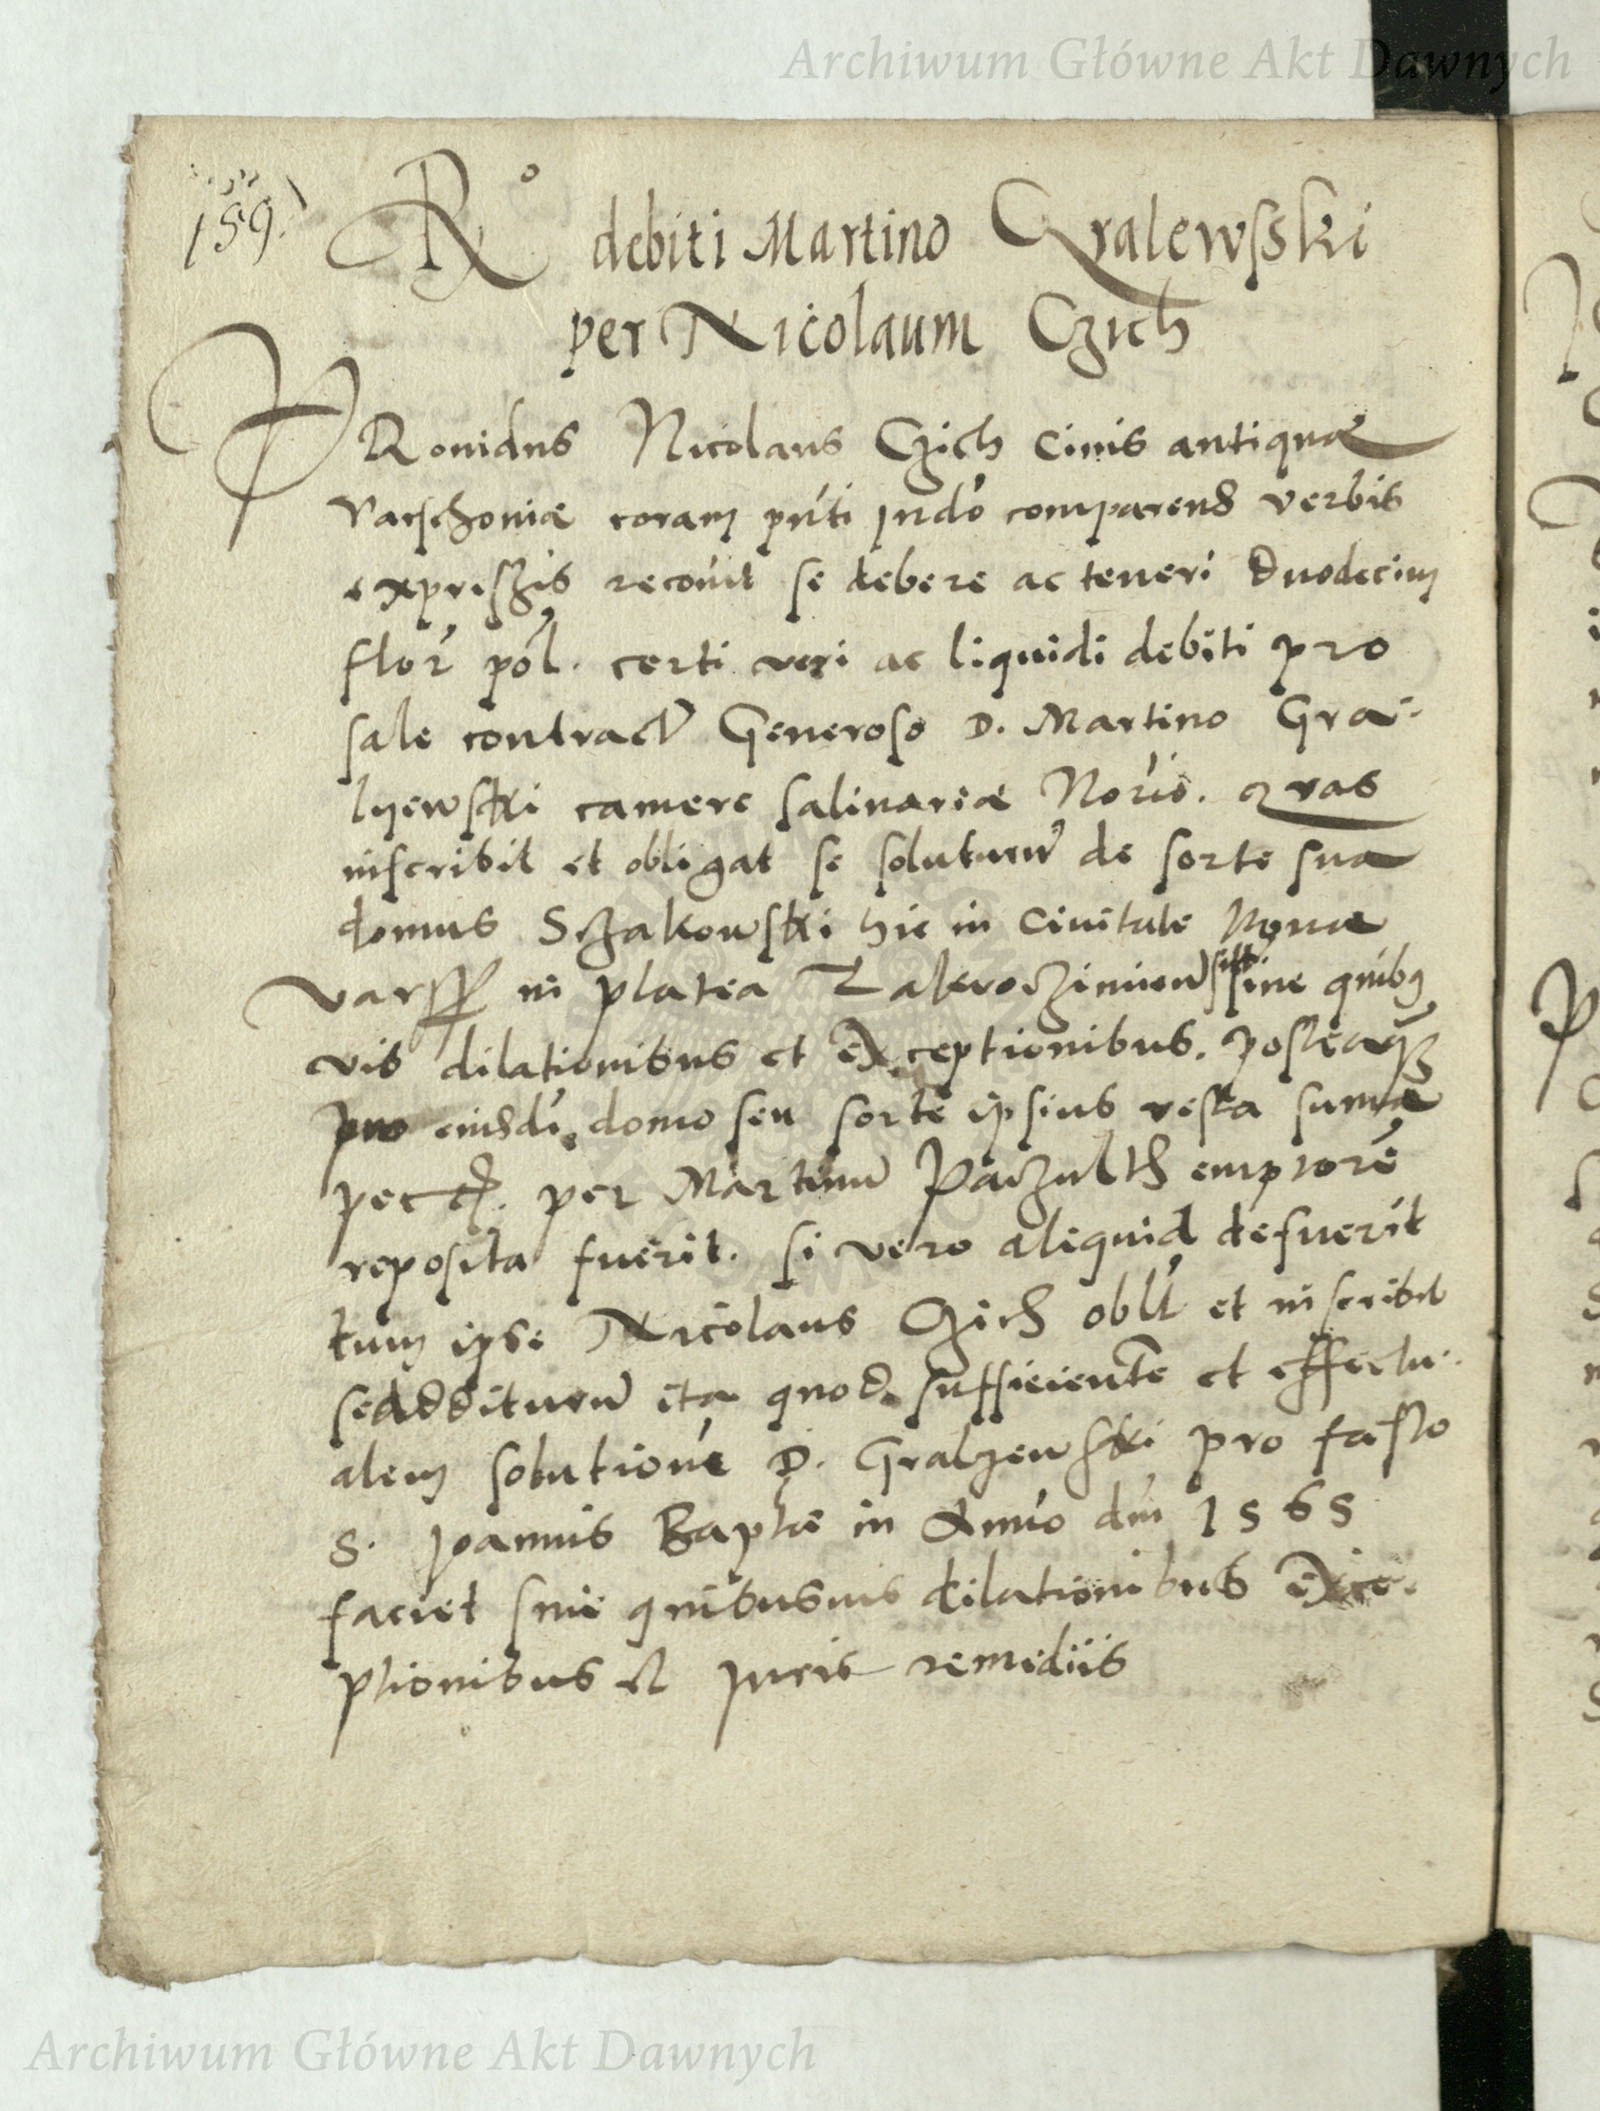 Archiwum Główne Akt Dawnych
159.
Ro debiti Martino Gralewsski
per Nicolaum Czich
PRouidus Nicolaus Czich Ciuis antiquæ
Varschouiæ coram pnti Judo comparens verbis
expreszis recouit se debere ac teneri duodecim
flor pol. certi veri ac liquidi debiti pro
sale contractu Generoso D. Martino Gra-
lyewski camere salinariæ Novio. quas
inscribit et obligat se soluturum de sorte sua
domus Szakowski hic in Ciuitate Noua
Varss in platea Zakroczimien sine quibus
vis dilationibus et exceptionibus. posteaquam
pro eiusdi domo seu sorte ipsius resta suma
pec per Martinum Paczulth emptore
reposita fuerit. si vero aliquid defuerit
tum ipse Nicolaus Czich obli et inscribit
se additurum ita quod sufficientem et effectu-
alem solutione D. Gralyewski pro festo
S. Joannis Baptæ in Anno dni 1565
faciet sine quibusuis dilationibus exce-
ptionibus et Juris remediis
Archiwum Główne Akt Dawnych